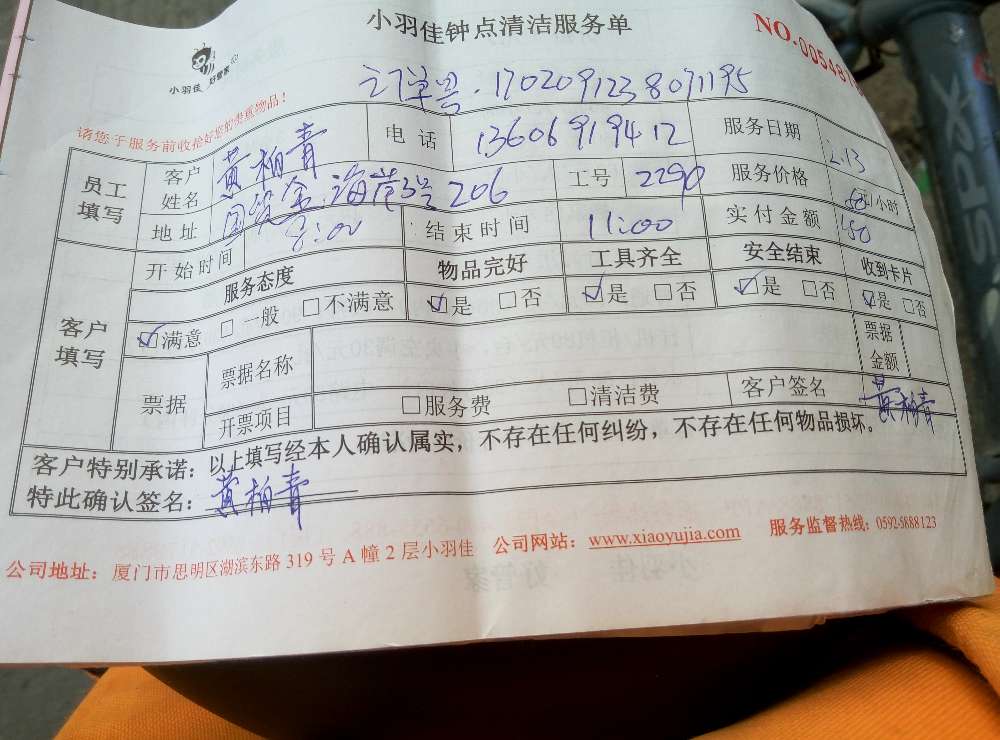 小羽佳钟点清洁服务单
NO.005481
小羽佳 好管家
订单号.1702091238071195
请您于服务前收拾好您的贵重物品！
员工填写 客户姓名 黄柏青 电话 13606919412 服务日期 2.13
地址 国贸金海岸3号206 工号 2290 服务价格 /小时
开始时间 8:00 结束时间 11:00 实付金额 150
客户填写 服务态度 物品完好 工具齐全 安全结束 收到卡片
☑满意 □一般 □不满意 ☑是 □否 ☑是 □否 ☑是 □否 ☑是 □否
票据 票据名称 票据金额
开票项目 □服务费 □清洁费 客户签名 黄柏青
客户特别承诺：以上填写经本人确认属实，不存在任何纠纷，不存在任何物品损坏。
特此确认签名：黄柏青
公司地址：厦门市思明区湖滨东路 319 号 A 幢 2 层小羽佳 公司网站：www.xiaoyujia.com 服务监督热线：0592-5888123